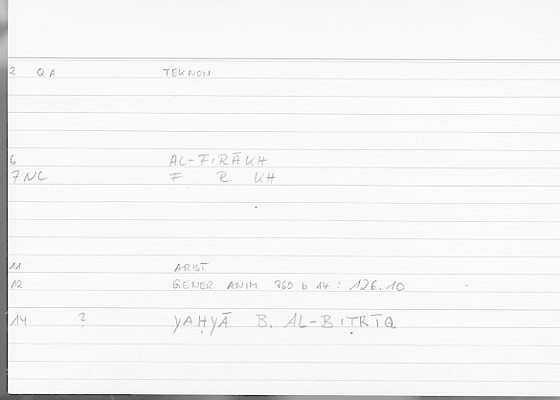 2 QA TEKNON
6 AL-FIRĀKH
7NC F R KH
11 ARIST
12 GENER ANIM 760 b 14 : 126.10
14 ? YAḤYĀ B. AL-BIṬRĪQ